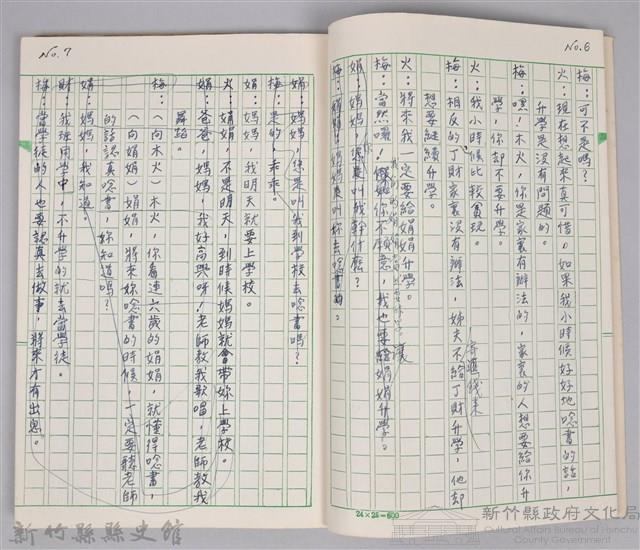 No.6
梅：可不是嗎？
火：現在想起來真可惜，如果我小時候好好地唸書的話，
升學是沒有問題的。
梅：嘿！木火，你是家裏有辦法的，家裏的人想要給你升
學，你却不要升學。
火：我小時候比較貪玩。
梅：相反的丁財家裏沒有辦法，姊夫不給丁財升學，他却
想要繼續升學。
火：將來我一定要給娟娟升學。
梅：當然囉！你不願意，我也要讓娟娟升學。
娟：媽媽，您叫我幹什麼？
梅：媽媽來叫妳去唸書的。
24×25=600
No.7
娟：媽媽，您是叫我到學校去唸書嗎？
梅：是的，乖乖。
娟：媽媽，我明天就要上學校。
火：娟娟，不是明天，到時候媽媽就會帶妳上學校。
娟：爸爸，媽媽，我好高興呀！老師教我歌唱，老師教我
舞蹈。
梅：（向木火）木火，你看連六歲的娟娟，就懂得唸書，
（向娟娟）娟娟，將來妳唸書的時候，一定要聽老師
的話認真唸書，妳知道嗎？
娟：媽媽，我知道。
財：我班同學中，不升學的就去當學徒。
梅：當學徒的人也要認真去做事，將來才有出息。
新竹縣縣史館
新竹縣政府文化局
Cultural Affairs Bureau of Hsinchu
County Government